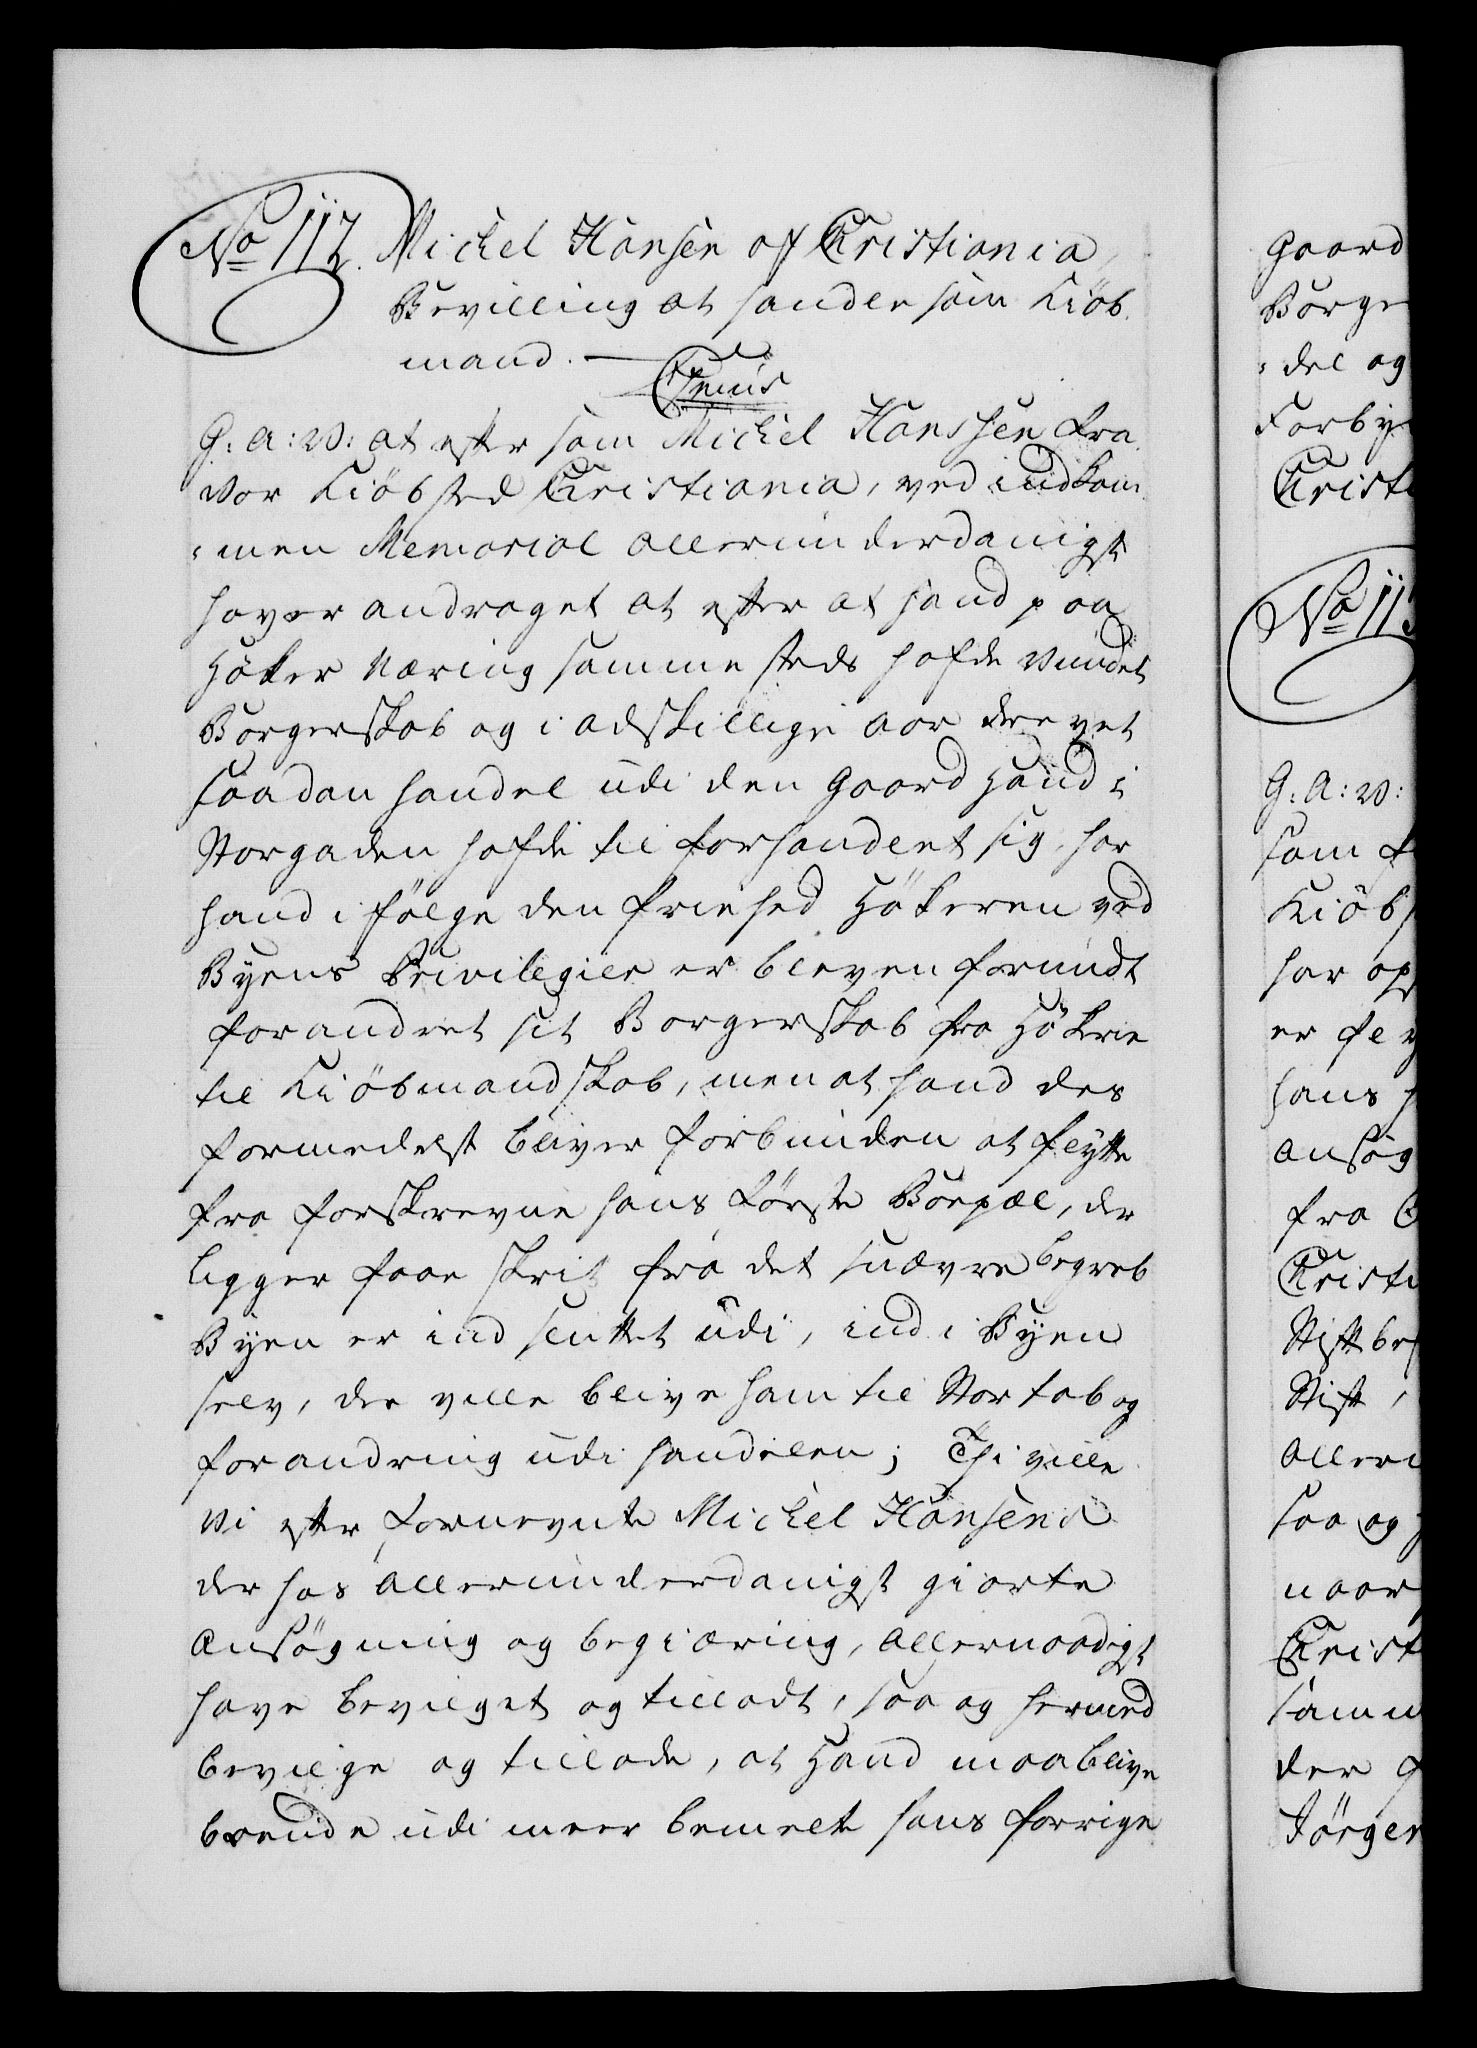 No 112. Michel Hansen af Christiania,
Bevilling at handle som Kiöb
mand.
Cr: G: A: V: at efter som Michel Hanssen fra
vor Kiöbsted Christiania, ved indkom
-men Memorial allerunderdanigst
haver andraget at efter at hand paa
Höker Næring sammesteds hafde vundet
Borgerskab og i adskillige Aar drevet
saadan handel udi den Gaard Hand i
Storgaden hafde til forhandlet sig, har
hand i fölge den friehed Hökeren ved
Byens Privilegier er bleven forundt
forandret sit Borgerskab fra Hökrie
til Kiöbmandskab, men at hand des
formedelst bliver forbunden at flytte
fra forskrevne hans første Boepæl, der
ligger faae skrit fra det snævre begreb
Byen er indsluttet udi, ind i Byen
selv, der ville blive ham til Stor tab og
forandring udi handelen; Thi ville
Vi efter fornevnte Michel Hansens
der hos allerunderdanigst giorte
Ansögning og begiæring, allernaadigst
have bevilget og tilladt, saa og hermed
bevilge og tillade, at Hand maa blive
boende udi meer bemelte hans forrige
Gaard
Borge
-del og
Forby
Christi
No 113
G: A: V:
som f
Kiöb
har op
er fly
hans
ansög
fra
Christi
Stiftbe
Stift,
aller
saa og
naar
Christ
samm
der
Jörgen